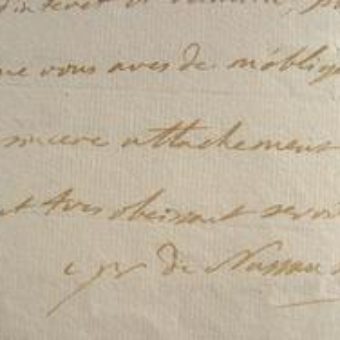 d'interet
que vous aves de m'oblige
sincere attachement
et tres obeissant servit
de Nassau